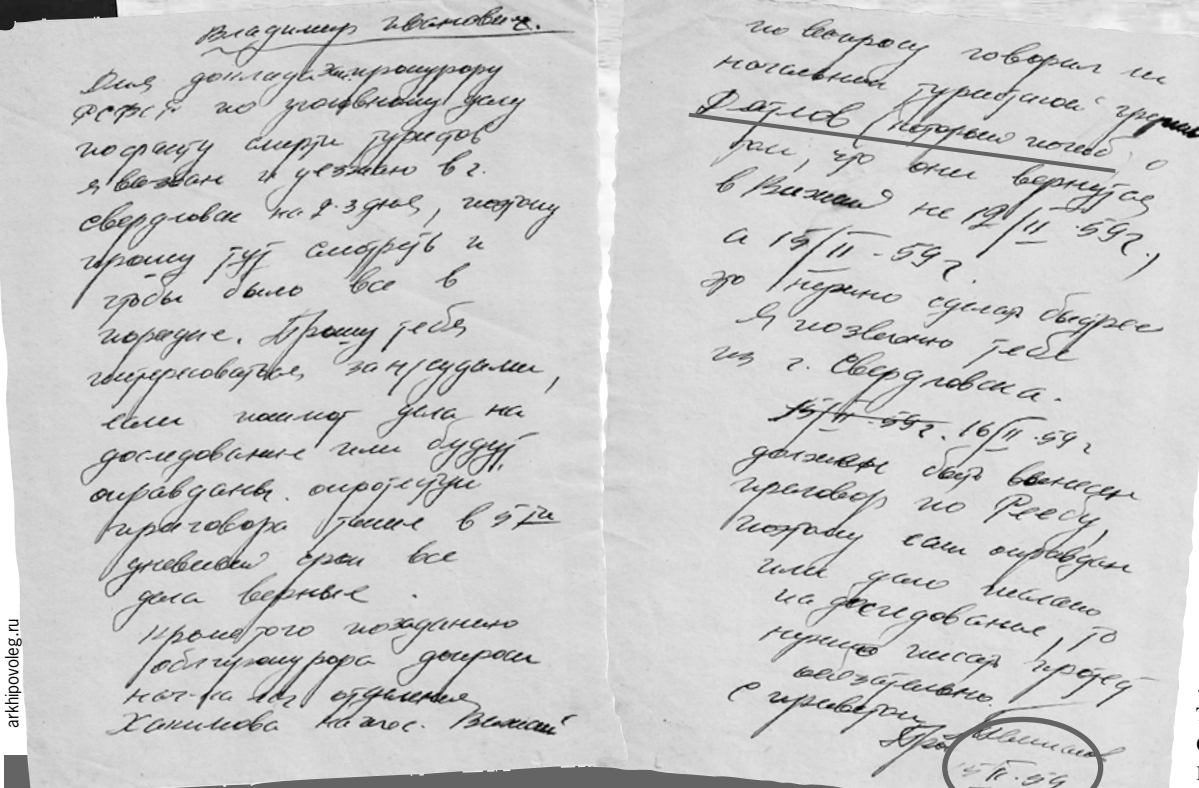 Владимир Иванович.
Для доклада Зам. прокурору
РСФСР по уголовному делу
по факту смерти туристов
я вызван и уезжаю в г.
Свердловск на 2-3 дня, поэтому
прошу тут смотреть и
чтобы было все в
порядке. Прошу тебя
интересоваться за н/судами,
если пошлют дела на
доследование или будут
оправданы. опротестуй
приговора также в 5 7ми
дневный срок все
дела верные.
Кроме того по заданию
облпрокурора допроси
нач-ка л/п отделения
Хакимова на пос. Вижай
по вопросу говорил ли
начальник туристской группы
Дятлов (который погиб) о
том, что они вернутся
в Вижай не 12/II-59 г.,
а 15/II-59 г.
это нужно сделать быстрее
Я позвоню тебе
из г. Свердловска.
15/II-59 г. 16/II-59 г
должен быть вынесен
приговор по Реебу,
поэтому если оправдан
или дело послано
на доследование, то
нужно писать протест
обязательно.
С приветом
15/II-59
arkhipovoleg.ru